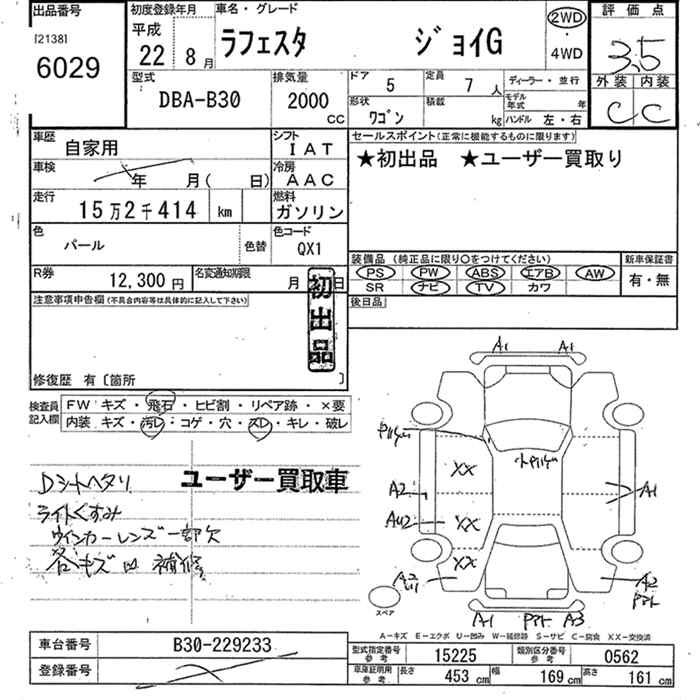 出品番号 初度登録年月 車名・グレード 2WD 評価点
[2138] 平成
6029 22 8月 ラフェスタ ジョイG ・ 3.5
4WD
型式 排気量 ドア 5 定員 7人 ディーラー・並行 外装 内装
DBA-B30 2000 CC 形状 ワゴン 積載 kg モデル年式 年 C C
ハンドル 左・右
車歴 自家用 シフト IAT セールスポイント(正常に機能するものに限ります)
車検 年 月( 日) 冷房 AAC ★初出品 ★ユーザー買取り
走行 15万2千414 km 燃料 ガソリン
色 パール 色替 色コード QX1
装備品 (純正品に限り○をつけてください) 新車保証書
R券 12,300円 名変通知期限 月 日 PS PW ABS エアB AW 有・無
SR ナビ TV カワ
注意事項申告欄(不具合内容等は具体的に記入して下さい) 初出品 後日品
修復歴 有〔箇所 〕
検査員記入欄 FW キズ・飛石・ヒビ割・リペア跡・×要
内装 キズ・汚レ・コゲ・穴・スレ・キレ・破レ
ユーザー買取車
Dシートヘタリ
ライトくすみ
ウインカーレンズ一部欠
各キズ凹 補修
A1 A1
XX
A2 A1
AU2 XX
XX
A2
A1 A3
スペア
A-キズ E-エクボ U-凹み W-補修跡 S-サビ C-腐食 XX-交換済
車台番号 B30-229233 型式指定番号 参考 15225 類別区分番号 参考 0562
登録番号 車庫証明用 参考 長さ 453 cm 幅 169 cm 高さ 161 cm